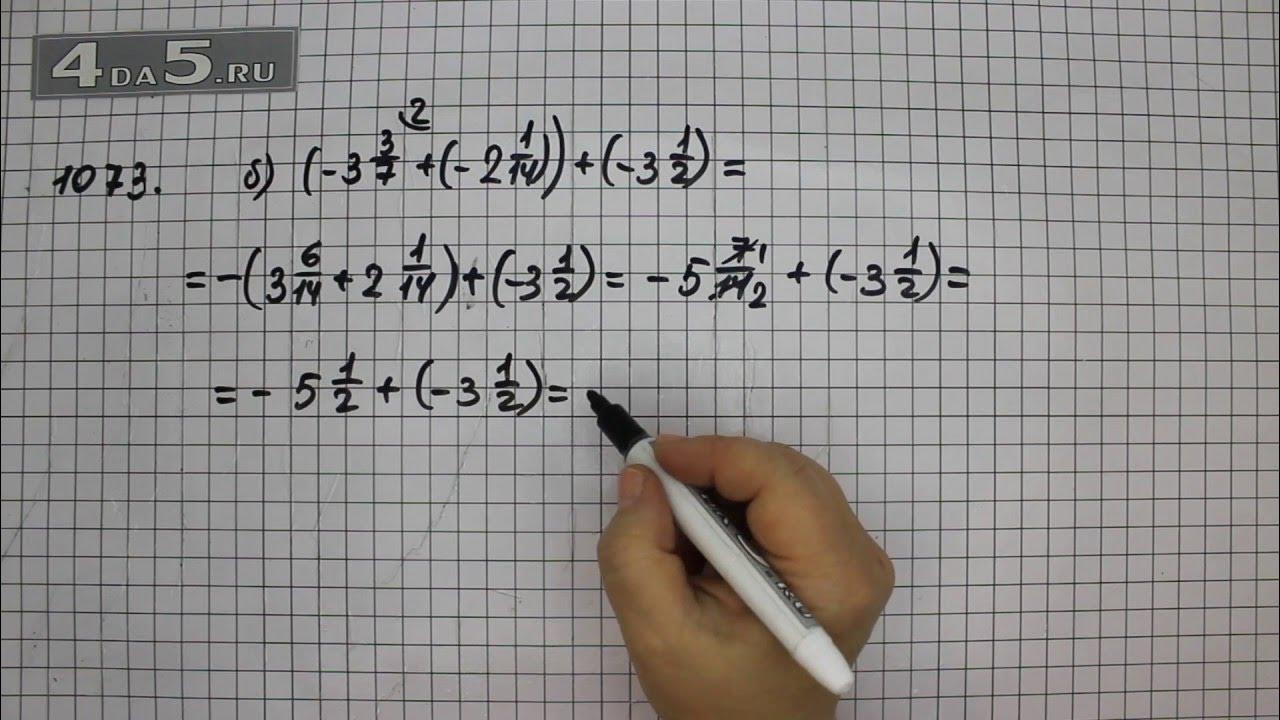 4DA5.RU
2
1073. б) (-3 3/7 + (-2 1/14)) + (-3 1/2) =
= -(3 6/14 + 2 1/14) + (-3 1/2) = -5 7/14 1/2 + (-3 1/2) =
= - 5 1/2 + (-3 1/2) =